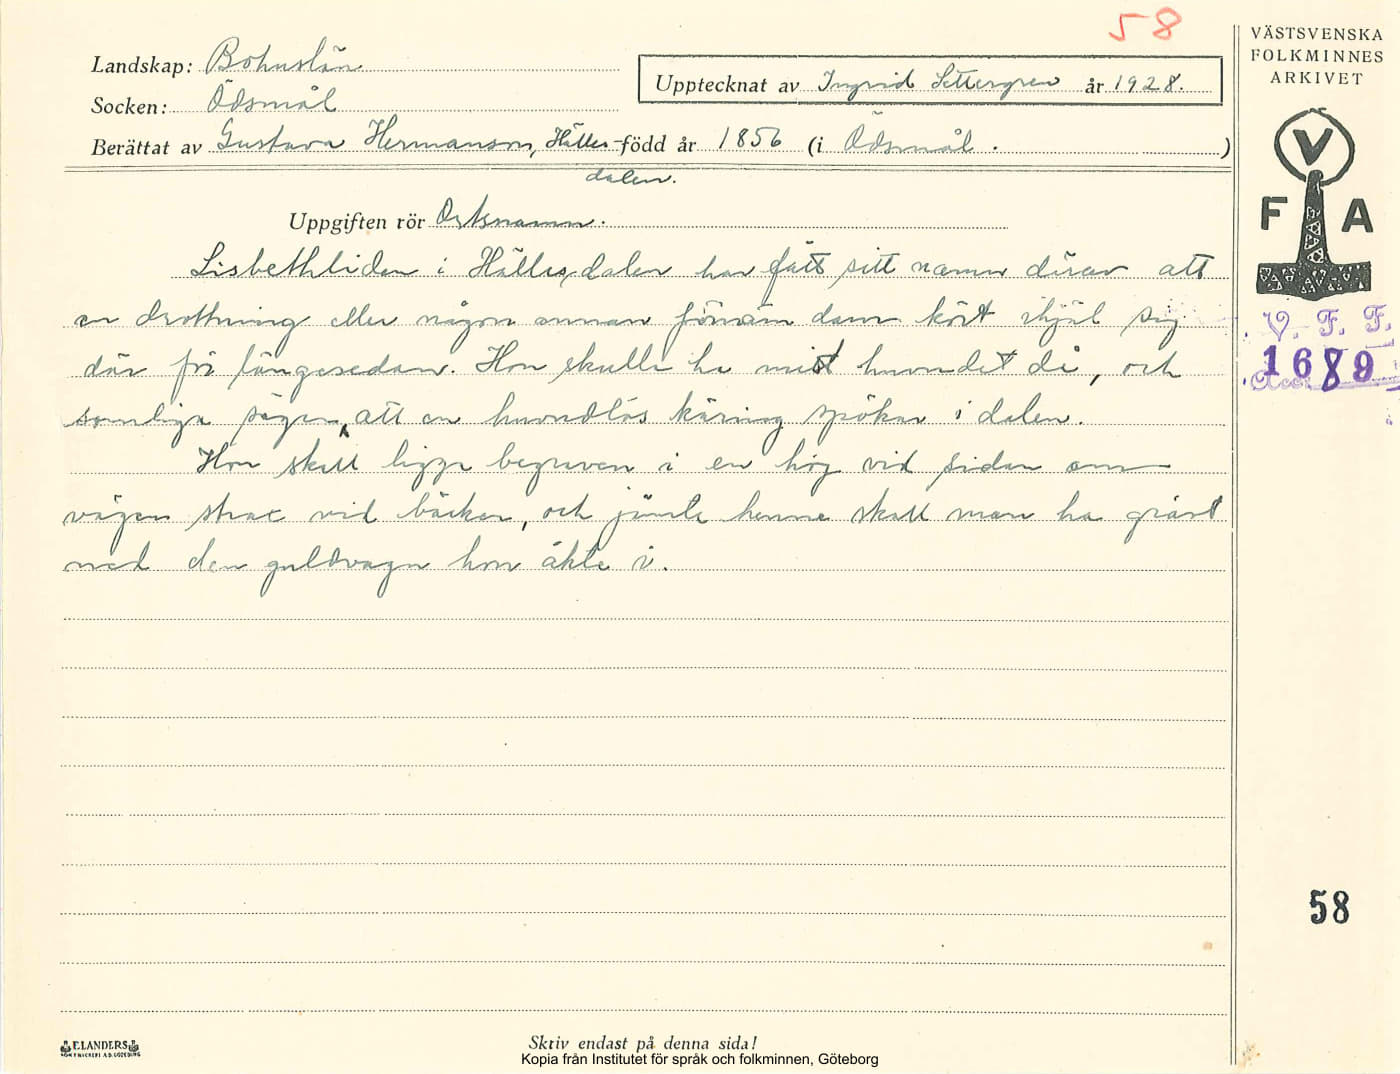 58
VÄSTSVENSKA
FOLKMINNES
ARKIVET
Landskap: Bohuslän
Upptecknat av Ingrid Settergren år 1928.
Socken: Ödsmål
Berättat av Gustava Hermanson, Hälles- född år 1856 (i Ödsmål . )
dalen.
V
F A
Uppgiften rör Ortsnamn.
Lisbethliden i Hällesdalen har fått sitt namn därav att
en drottning eller någon annan förnäm dam kört ihjäl sig
där för längesedan. Hon skulle ha mist huvudet då, och
somliga säger, att en huvudlös käring spökar i dalen.
Hon skall ligga begraven i en hög vid sidan om
vägen strax vid bäcken, och jämte henne skall man ha grävt
ned den guldvagn hon åkte i.
V. F. F.
1689
Acc.
58
ELANDERS
Skriv endast på denna sida!
Kopia från Institutet för språk och folkminnen, Göteborg